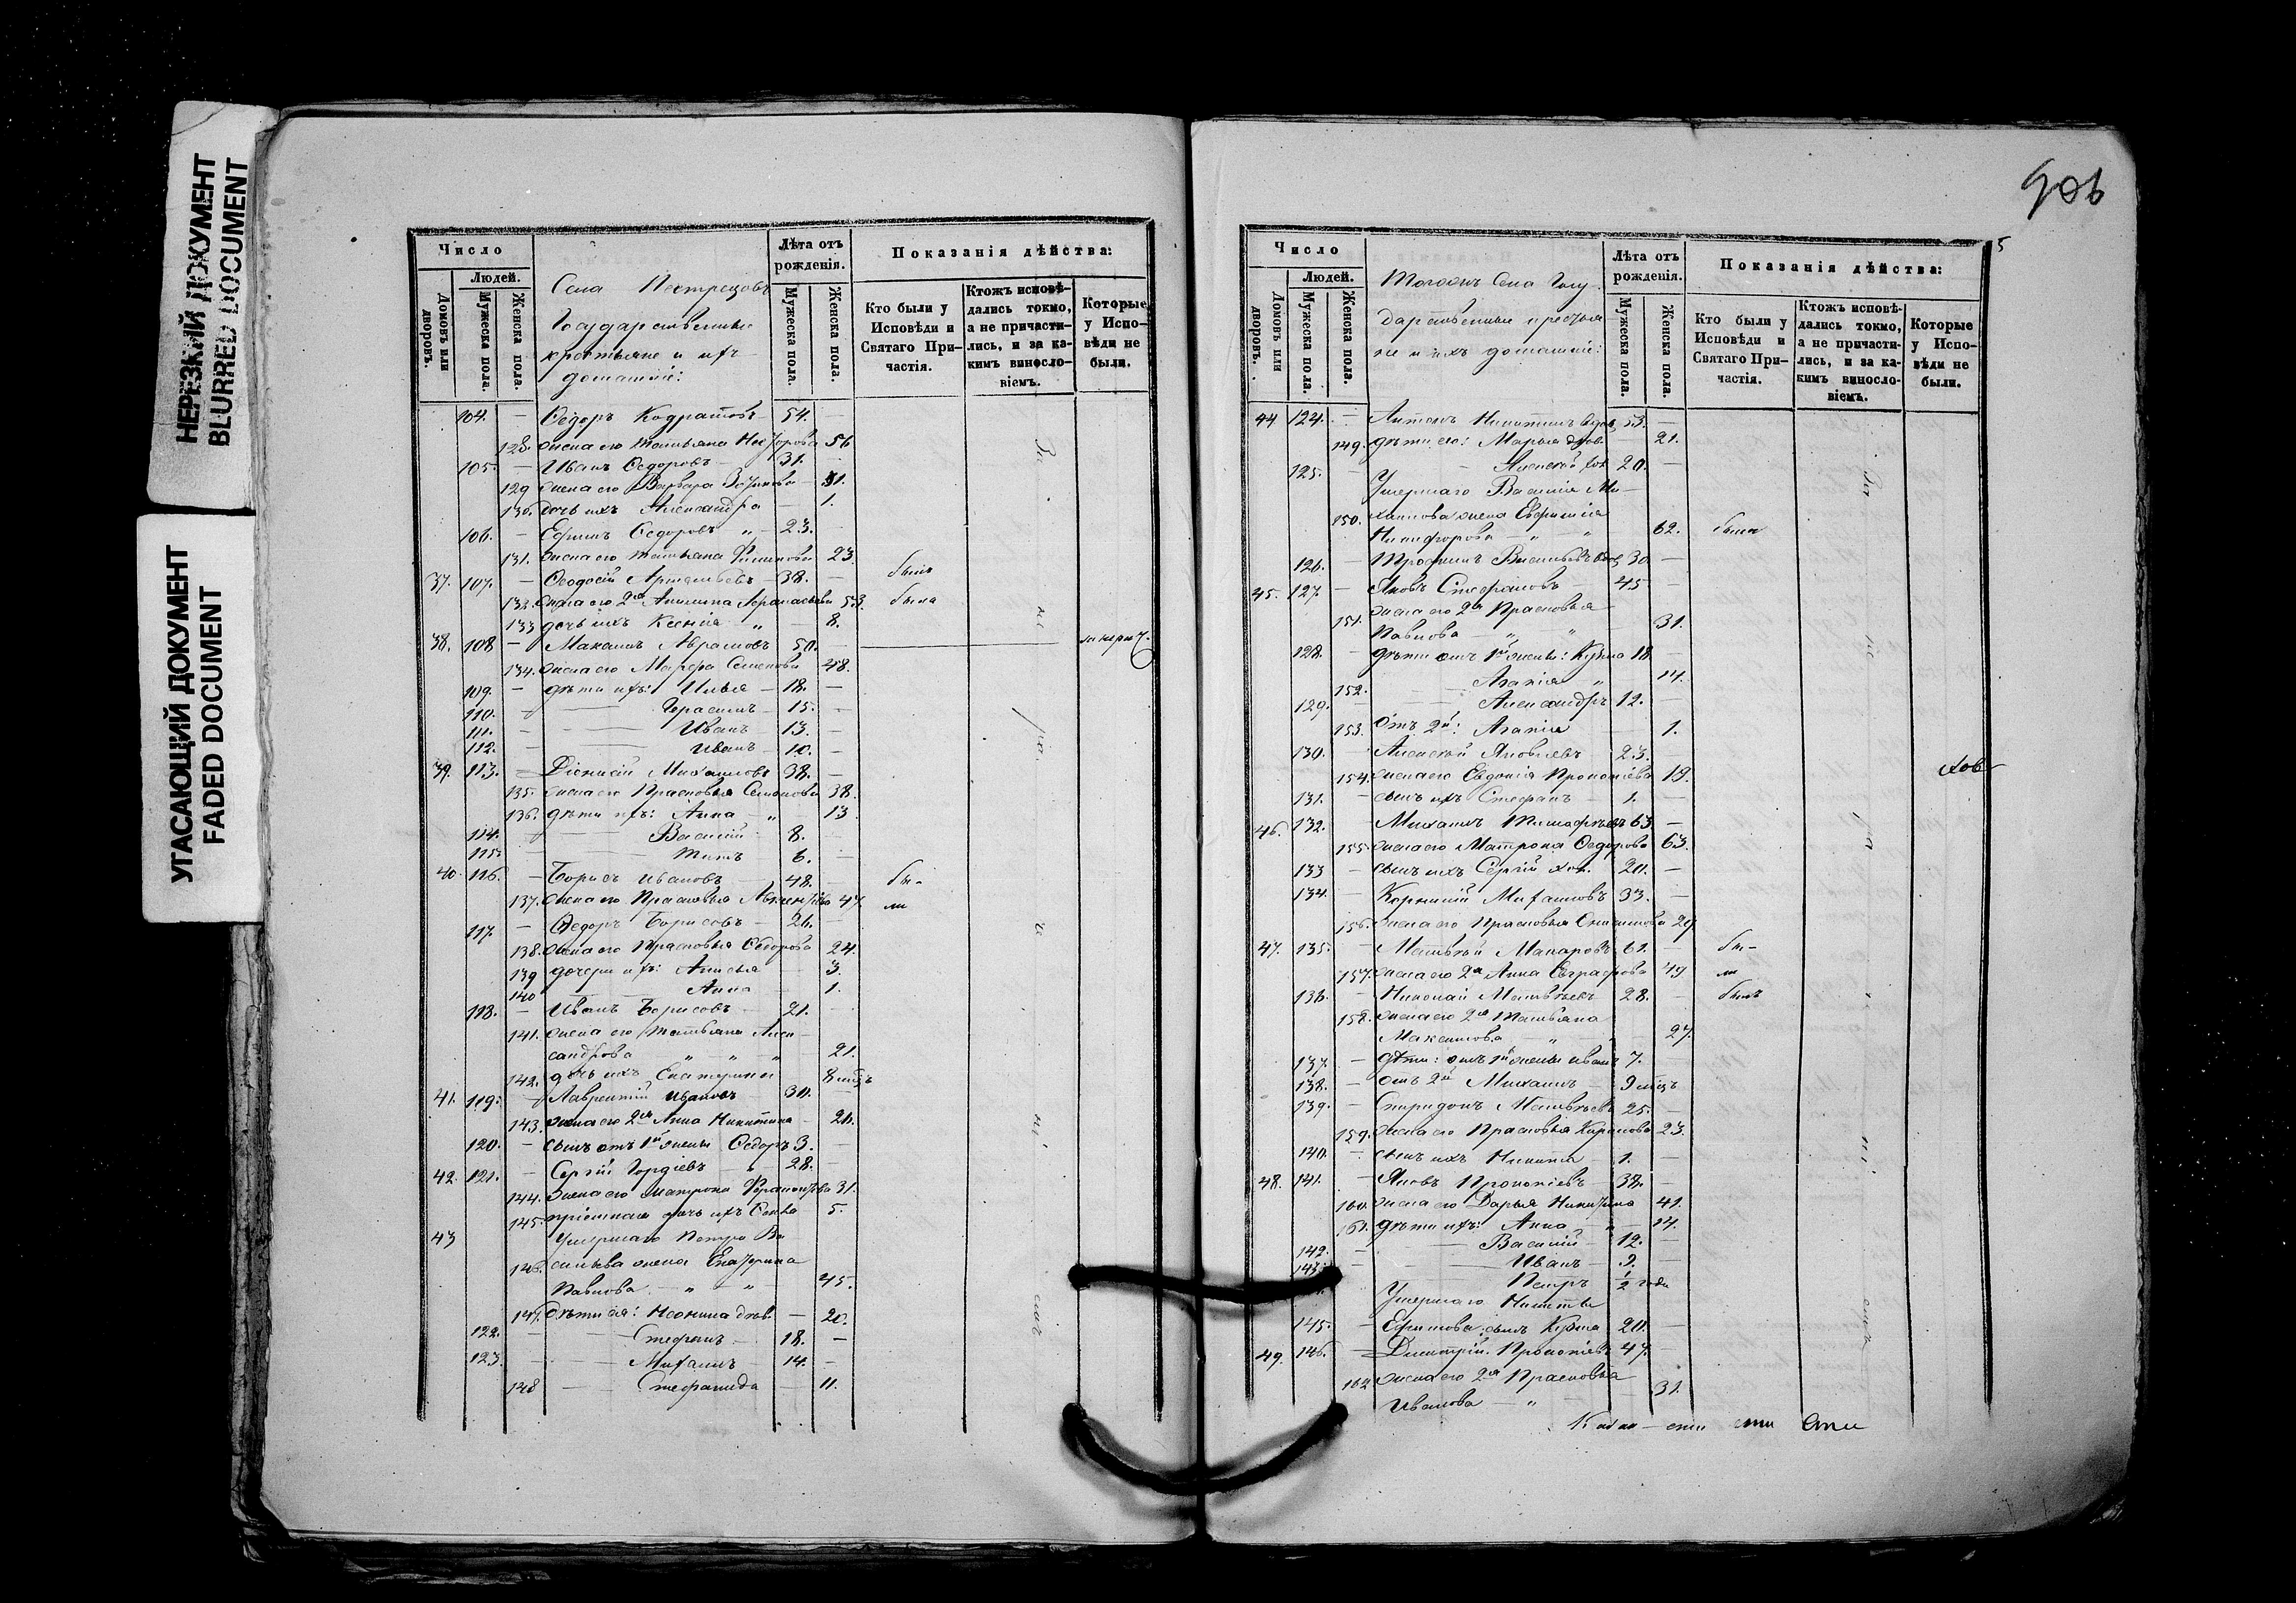 НЕРЕЗКИЙ ДОКУМЕНТ
BLURRED DOCUMENT
УГАСАЮЩИЙ ДОКУМЕНТ
FADED DOCUMENT
Число
Людей.
Домовъ или дворовъ.
Мужеска пола.
Женска пола.
Села Пестрецовъ
Государственные
крестьяне и ихъ
домашніе:
Лѣта отъ рожденія.
Мужеска пола.
Женска пола.
Показанія дѣйства:
Кто были у Исповѣди и Святаго При-частія.
Ктожъ исповѣ-дались токмо, а не причасти-лись, и за ка-кимъ виносло-віемъ.
Которые у Испо-вѣди не были.
104. — Ѳедоръ Кодратовъ — 54. —
128. жена его Татьяна 56
105. — Иванъ Ѳедоровъ — 31. —
129 жена его Варвара 31.
130. дочь ихъ Александра — 1.
106. — Ефимъ Ѳедоровъ „ — 23. —
131. жена его Татьяна Филипова 23.
37. 107. — Ѳеодосій Артемьевъ — 38. — былъ
132. жена его 2я Акилина Аѳанасьева 53. была
133 дочь ихъ Ксенія „ — 8.
38. 108 — Максимъ Аврамовъ 50. —
134. жена его Марфа Семенова 48.
109. — дѣти ихъ: Илья — 18. —
110. — Герасимъ — 15. —
111. — Иванъ — 13. —
112. — Иванъ — 10. —
39. 113. — Діонисій Михаиловъ 38. —
135. жена его Прасковья Семенова 38.
136. дѣти ихъ: Анна „ — 13
114. — Василій 8. —
115. — Титъ 6. —
40. 116. — Борисъ Ивановъ — 48. — бы-
137. жена его Прасковья 47. ли
117. — Ѳедоръ Борисовъ — 26. —
138. жена его Прасковья Ѳедорова 24.
139 дочери ихъ: Анисья — 3.
140 — Анна — 1.
118. — Иванъ Борисовъ — 21. —
141. жена его Татьяна Алек-
сандрова „ „ „ 21.
142. дочь ихъ Екатерина 8 мѣс
41. 119. — Лаврентій Ивановъ 30. —
143. жена его 2я Анна Никитина — 26.
120. — сынъ отъ 1й жены Ѳедоръ 3. —
42. 121. — Сергій Гордіевъ — „ 28. —
144. жена его Матрона 31.
145. дочь ихъ 5.
43 Умершаго Петра Ва-
146. сильева жена Екатерина
Павлова — „ — „ 45.
147. дѣти ея: Неонила дѣв. — 20.
122. — Стефанъ — 18. —
123. — Михаилъ — 14. —
148 — Стефанида — 11.
906
5
Число
Людей.
Домовъ или дворовъ.
Мужеска пола.
Женска пола.
Тогожъ Села Госу-
дарственные крестья-
не и ихъ домашніе:
Лѣта отъ рожденія.
Мужеска пола.
Женска пола.
Показанія дѣйства:
Кто были у Исповѣди и Святаго При-частія.
Ктожъ исповѣ-дались токмо, а не причасти-лись, и за ка-кимъ виносло-віемъ.
Которые у Испо-вѣди не были.
44 124. — Антонъ Никитинъ вдов. 53. —
149. дѣти его: Марья дѣв. — 21.
125. — Алексѣй хол. 20. —
Умершаго Василія Ми-
150. хаилова жена Евфимія
Никифорова — „ — „ 62. была
126. — Трофимъ Васильевъ вдов. 30. —
45. 127. — Яковъ Стефановъ — 45 —
151. жена его 2я Прасковья
Павлова „ „ 31.
128. — дѣти отъ 1й жены: Кузма 18 —
152. Агапія „ 14.
129. — Александръ 12. —
153. Отъ 2й: Агапія 1.
130. — Алексѣй Яковлевъ — 23. —
154. жена его Евдокія Прокопіева 19.
131. — сынъ ихъ Стефанъ — 1. —
46. 132. — Михаилъ Тимофѣевъ 63 —
155. жена его Матрона Ѳедорова 63.
133 — сынъ ихъ Сергій хол. 20. —
134. — Корнилій Михаиловъ 33. —
156. жена его Прасковья 29
47. 135. — Матвѣй Макаровъ 61. — бы-
157. жена его 2я Анна Евграфова 49 ли
136. — Николай Матвѣевъ 28. — былъ
158. жена его 2я Татьяна
Максимова „ „ 27.
137. — дѣти: отъ 1й жены Иванъ 7.
138. — отъ 2й Михаилъ — 9 мѣсъ
139. — Спиридонъ Матвѣевъ 25. —
159. жена его Прасковья 23.
140. — сынъ ихъ Никита — 1. —
48. 141. — Яковъ Прокопіевъ — 38. —
160. жена его Дарья Никитина 41.
161. дѣти ихъ: Анна — „ — 14.
142. — Василій — 12. —
143. — Иванъ — 9. —
Петръ ½ года
Умершаго Никиты
145. — Ефимова сынъ Кузма 20. —
49. 146. — Димитрій Прокопіевъ 47. —
162 жена его 2я Прасковья
Иванова — „ — 31.